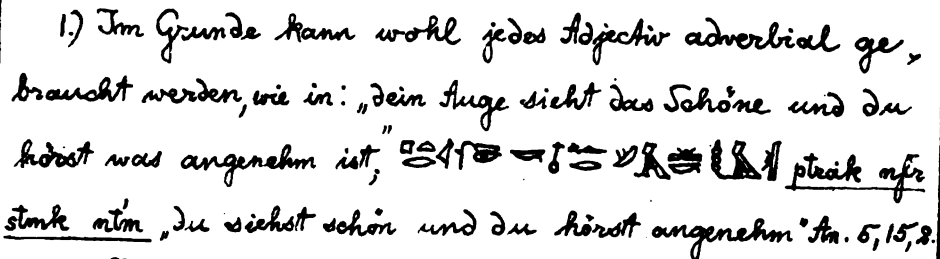 1.) Im Grunde kann wohl jedes Adjectiv adverbial ge-
braucht werden, wie in: „dein Auge sieht das Schöne und du
hörst was angenehm ist“, ptrȧk nfr
stmk ntm „du siehst schön und du hörst angenehm“ An. 5,15,2.